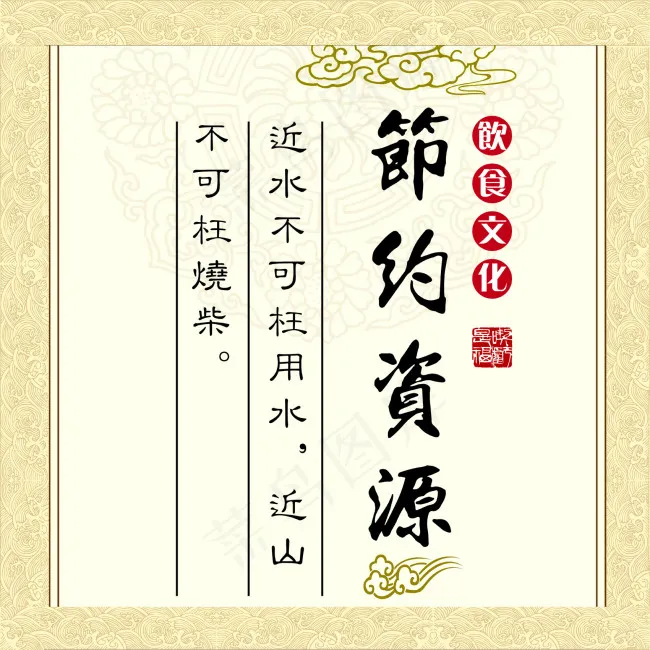 飲食文化
節約資源
近水不可枉用水，近山
不可枉燒柴。